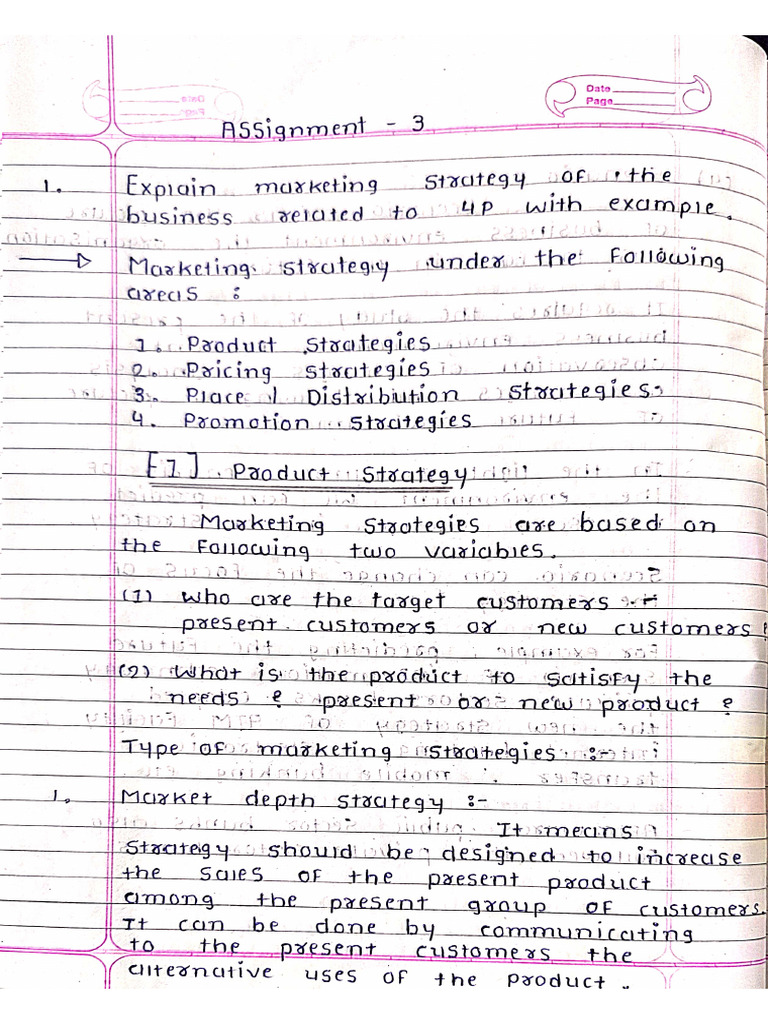 Date
Page
Assignment - 3
1. Explain marketing strategy of the
business related to 4P with example.
Marketing strategy under the following
areas :
1. Product Strategies
2. Pricing strategies
3. Place / Distribution strategies
4. Promotion strategies
[1] Product Strategy
Marketing Strategies are based on
the following two variables.
(1) Who are the target customers :-
present customers or new customers?
(2) What is the product to satisfy the
needs ? present or new product ?
Type of marketing strategies :-
1. Market depth strategy :-
It means
strategy should be designed to increase
the sales of the present product
among the present group of customers.
It can be done by communicating
to the present customers the
alternative uses of the product.